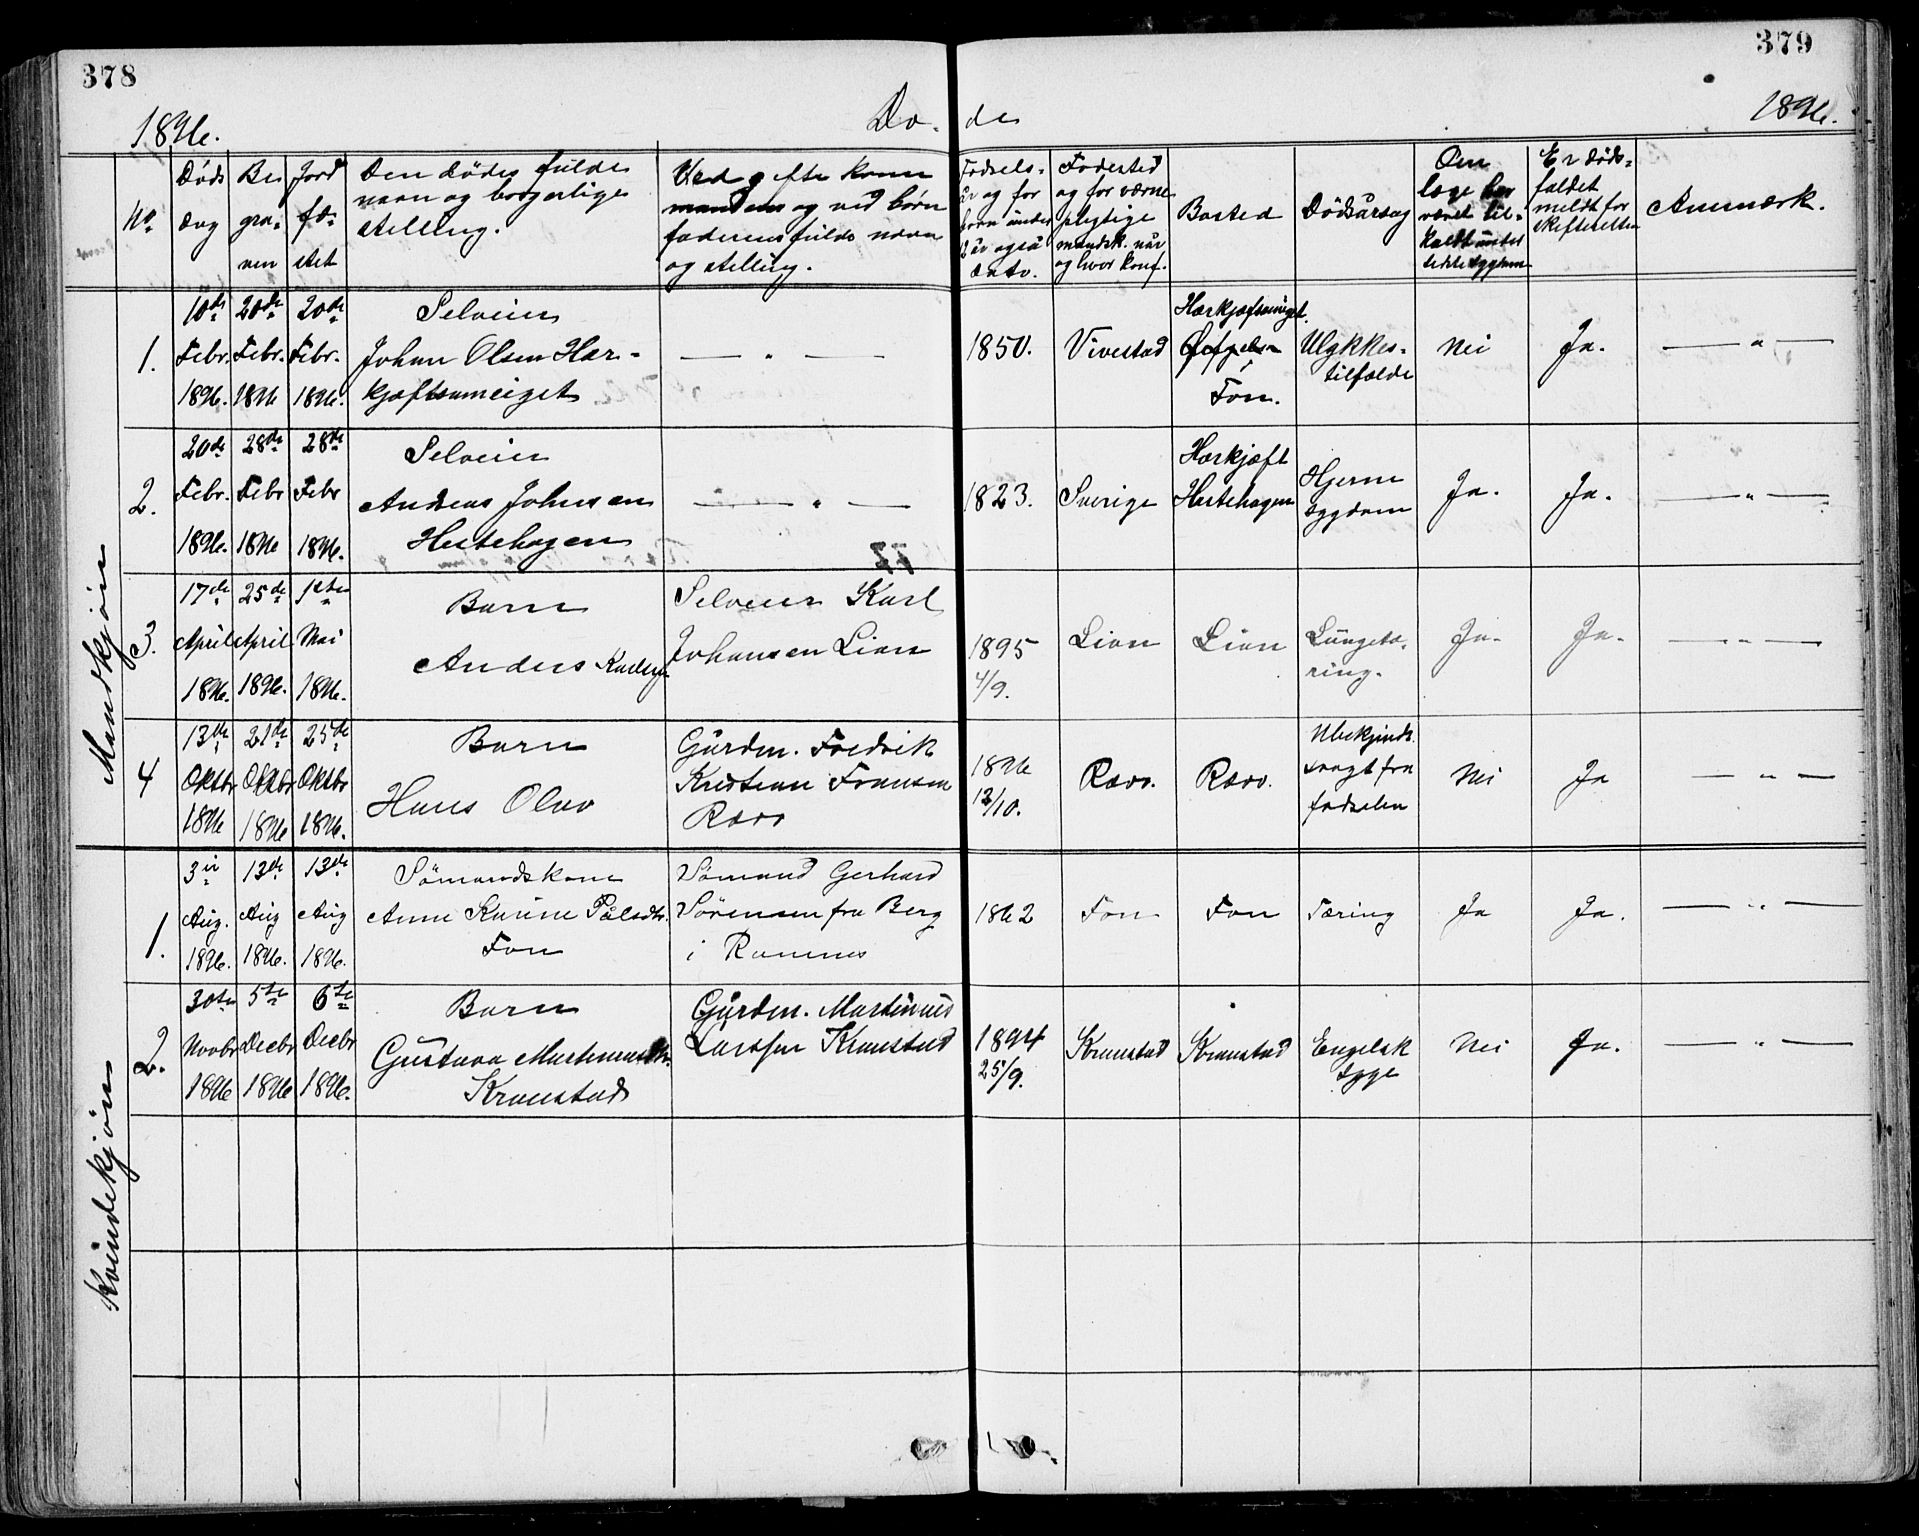 378
379
1896.
Dø-
de
1896.
No.
Døds
dag
Be
gra-
ven
Jord
fæ-
stet
Den dødes fulde
navn og borgerlige
stilling.
Ved gifte koner
mandens og ved børn
faderens fulde navn
og stilling.
Fødsels-
år og for
børn under
2 år også
dato.
Fødested
og for værne
pligtige
mandsk. når
og hvor konf.
Bosted
Dødsårsag
Om
læge har
været til-
kaldt under
sidste sygdom
Er døds-
faldet
meldt for
skifteretten
Anmærk.
Mandkjøn
1.
10de
Febr.
1896.
20de
Febr.
1896
20de
Febr.
1896.
Selveier
Johan Olsen Hær-
kjæftsameiget
— " —
1850.
Vivestad
Hærkjæftsameiget
Fon.
Ulykkes-
tilfælde
Nei
Ja.
— " —
2.
20de
Febr.
1896.
28de
Febr
1896
28de
Febr
1896.
Selveier
Andreas Johnsen
Hestehagen
— " —
1823.
Sverige
Hærkjæft
Hestehagen
Hjerne
sygdom
Ja.
Ja.
— " —
3.
17de
April
1896.
25de
April
1896.
1ste
Mai
1896.
Barn
Anders Karlsen
Selveier Karl
Johansen Lian
1895
4/9.
Lian
Lian
Lungetæ-
ring.
Ja.
Ja.
— " —
4
13de
Oktbr
1896
21de
Oktbr
1896
25de
Oktbr
1896.
Barn
Hans Olav
Gårdm. Fredrik
Kristian Fransen
Ravo
1896
12/10.
Ravo.
Ravo.
Ubekjendt.
svagt fra
fødselen
Nei
Ja
— " —
Kvindekjøn
1.
3di
Aug.
1896.
13de
Aug
1896.
13de
Aug
1896.
Sömandskone
Anne Karine Pålsdtr.
Fon
Sömand Gerhard
Sörensen fra Berg
i Ramnes
1862
Fon
Fon
Tæring
Ja
Ja.
— " —
2.
30te
Novbr
1896
5te
Decbr
1896
6te
Decbr
1896.
Barn
Gustava Martinusdtr.
Kranstad
Gårdm. Martinius
Larssen Kranstad
1894
25/9.
Kranstad
Kranstad
Engelsk
syge
Nei
Ja.
— " —